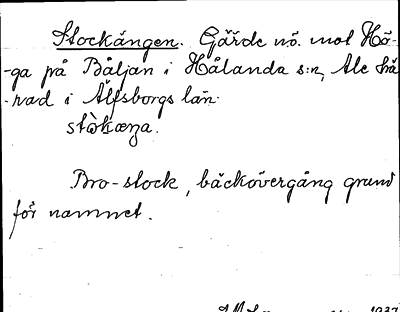 Stockängen. Gärde nö. mot Hö-
-ga på Båljan i Hålanda s:n, Ale hä
-rad i Älfsborgs län.
stòkæŋa.
Bro-stock, bäckövergång grund
för namnet.
1937